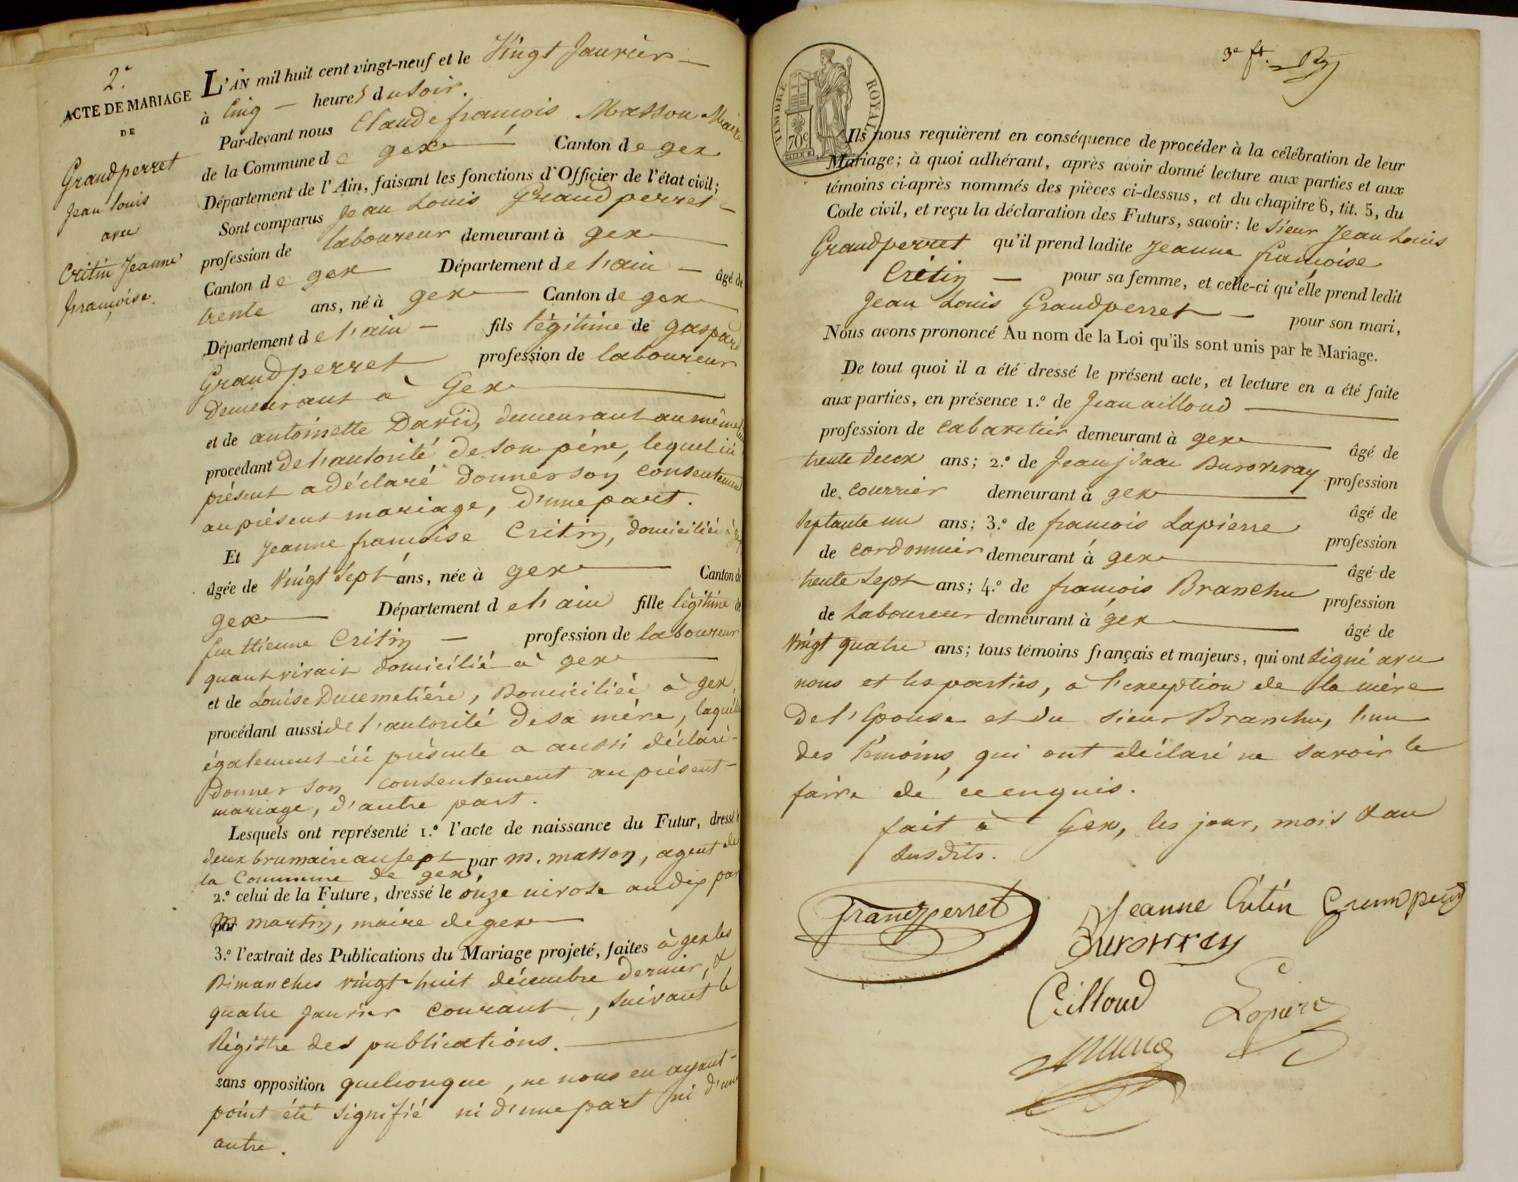 2.e
ACTE DE MARIAGE
DE
Grandperret
Jean Louis
avec
Critin Jeanne
françoise.
L'AN mil huit cent vingt-neuf et le Vingt Janvier
à Cinq heures du soir.
Par-devant nous Claude françois Masson Maire
de la Commune de gex Canton de gex
Département de l'Ain, faisant les fonctions d'Officier de l'état civil;
Sont comparus Jean Louis Grandperret
profession de laboureur demeurant à gex
Canton de gex Département de l'ain âgé de
trente ans, né à gex Canton de gex
Département de l'ain fils légitime de gaspard
Grandperret profession de laboureur
demeurant à Gex
et de antoinette David, demeurant au même lieu
procedant de l'autorité de son père, lequel ici
présent a déclaré donner son consentement
au présent mariage, d'une part.
Et Jeanne francoise Critin, domiciliée à gex
âgée de Vingt Sept ans, née à gex Canton de
gex Département de l'ain fille légitime de
feu Etienne Critin profession de laboureur
quand vivait domicilié à gex
et de Louise Ducemetiére, Domiciliée à gex,
procédant aussi de l'autorité de sa mère, laquelle
également ici présente a aussi déclaré
donner son consentement au présent
mariage, d'autre part.
Lesquels ont représenté 1.° l'acte de naissance du Futur, dressé le
deux brumaire an sept par m. masson, agent de
la Commune de gex
2.° celui de la Future, dressé le onze nivose an dix par
M martin, maire de gex
3.° l'extrait des Publications du Mariage projeté, faites à gex les
Dimanches vingt-huit décembre dernier, &
quatre Janvier courant, suivant le
Régistre des publications.
sans opposition quelconque, ne nous en ayant
point été signifié ni d'une part ni d'une
autre.
3e ft.
TIMBRE ROYAL
70c
Ils nous requièrent en conséquence de procéder à la célébration de leur
Mariage; à quoi adhérant, après avoir donné lecture aux parties et aux
témoins ci-après nommés des pièces ci-dessus, et du chapitre 6, tit. 5, du
Code civil, et reçu la déclaration des Futurs, savoir: le Sieur Jean Louis
Grandperret qu'il prend ladite Jeanne françoise
Critin pour sa femme, et celle-ci qu'elle prend ledit
Jean Louis Grandperret pour son mari,
Nous avons prononcé Au nom de la Loi qu'ils sont unis par le Mariage.
De tout quoi il a été dressé le présent acte, et lecture en a été faite
aux parties, en présence 1.° de Jean ailloud
profession de Cabaretier demeurant à gex âgé de
trente deux ans; 2.° de Jean jsaac Duroveray profession
de Courrier demeurant à gex âgé de
Septante un ans; 3.° de francois Lapierre profession
de Cordonnier demeurant à gex âgé de
trente Sept ans; 4.° de francois Branchu profession
de Laboureur demeurant à gex âgé de
Vingt quatre ans; tous témoins français et majeurs, qui ont signé avec
nous et les parties, à l'exception de la mère
de l'Epouse et du sieur Branchu, l'un
des témoins, qui ont déclaré ne savoir le
faire de ce enquis.
fait à Gex, les jour, mois & an
susdits.
Grandperret
Jeanne Critin Grandperret
Duroveray
Cilloud
Lapierre